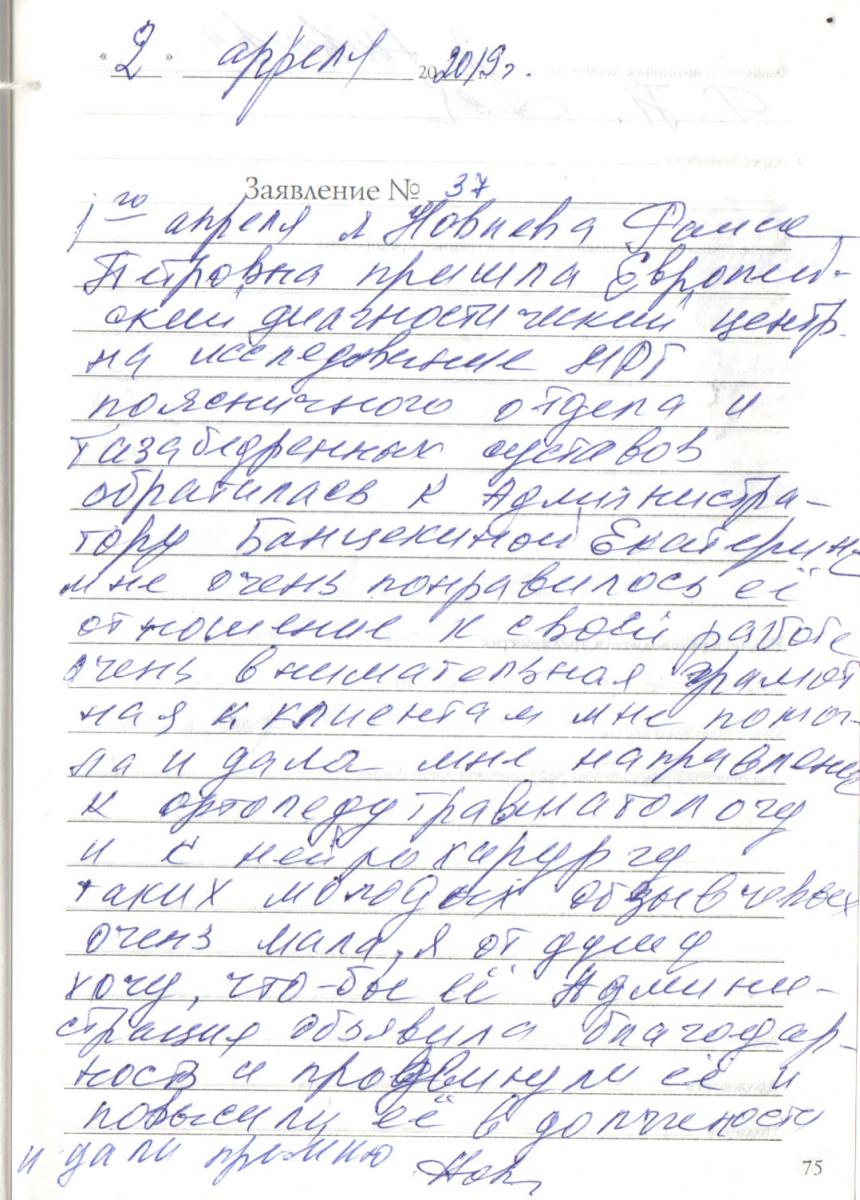 « 2 » апреля 20 2019 г.
Заявление № 37
1го апреля я Новиева Раиса
Петровна пришла Европей-
ский диагностический центр
на исследование МРТ
поясничного отдела и
тазабедренных суставов
обратилась к Администра-
тору Банцекиной Екатерине
мне очень понравилось её
отношение к своей работе
очень внимательная грамот
ная к клиентам мне помог-
ла и дала мне направление
к ортопеду травматологу
и к нейрохирургу
таких молодых отзывчевых
очень мала, я от души
хочу, что-бы её Админи-
страция объявила благодар-
ность и продвинули её и
повысили её в должности
и дали премию
75